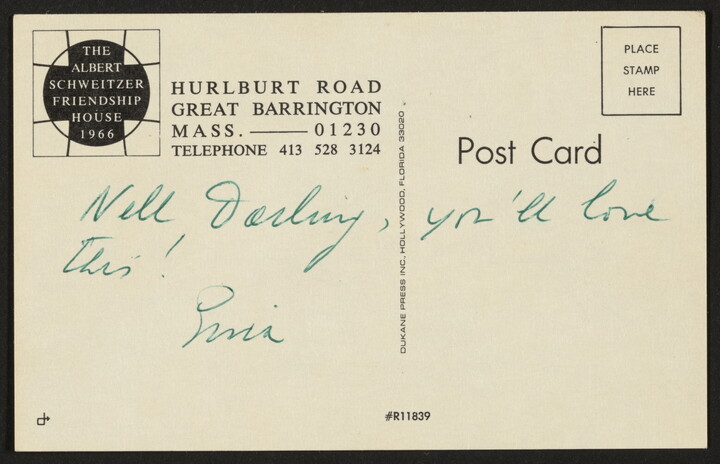 THE
ALBERT
SCHWEITZER
FRIENDSHIP
HOUSE
1966
HURLBURT ROAD
GREAT BARRINGTON
MASS. —— 01230
TELEPHONE 413 528 3124
PLACE
STAMP
HERE
Post Card
DUKANE PRESS INC, HOLLYWOOD, FLORIDA 33020
Nell Darling, you'll love
this!
#R11839